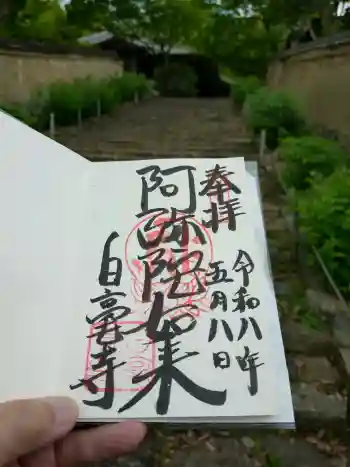 奉拝
令和八年
五月八日
阿弥陀如来
白毫寺